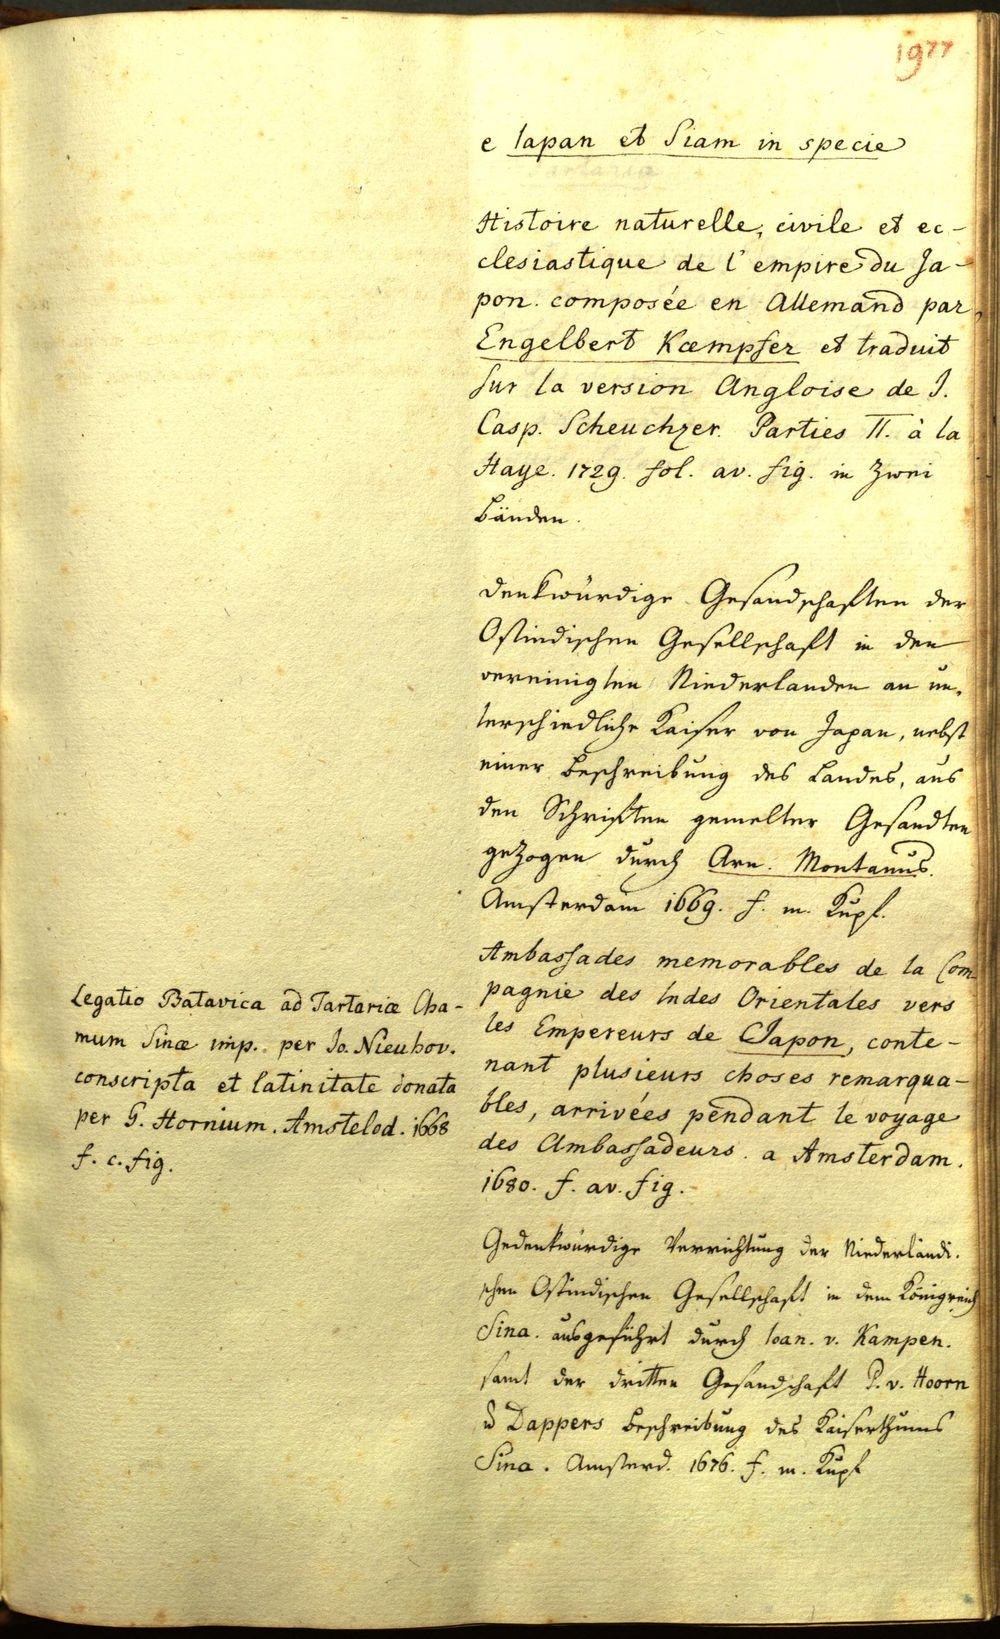 1977
e Iapan et Siam in specie
Histoire naturelle, civile et ec-
clesiastique de l'empire du Ja-
pon. composée en Allemand par
Engelbert Kœmpfer et traduit
sur la version Angloise de J.
Casp. Scheuchzer. Parties II. à la
Haye. 1729. fol. av. fig. in zwei
Bänden.
Denkwürdige Gesandschaften der
Ostindischen Gesellschaft in den
vereinigten Niederlanden an un-
terschiedliche Kaiser von Japan, nebst
einer Beschreibung des Landes, aus
den Schriften gemelter Gesandten
gezogen durch Arn. Montanus.
Amsterdam 1669. f. m. Kupf.
Ambassades memorables de la Com-
pagnie des Indes Orientales vers
les Empereurs de Japon, conte-
nant plusieurs choses remarqua-
bles, arrivées pendant le voyage
des Ambassadeurs. a Amsterdam.
1680. f. av. fig.
Gedenkwürdige Verrichtung der Niederländi-
schen Ostindischen Gesellschaft in dem Königreich
Sina. ausgeführt durch Ioan. v. Kampen.
samt der dritten Gesandschaft P. v. Hoorn
u Dappers Beschreibung des Kaiserthums
Sina. Amsterd. 1676. f. m. Kupf
Legatio Batavica ad Tartariæ Cha-
mum Sinæ imp. per Jo. Nieuhov.
conscripta et latinitate donata
per G. Hornium. Amstelod. 1668
f. c. fig.